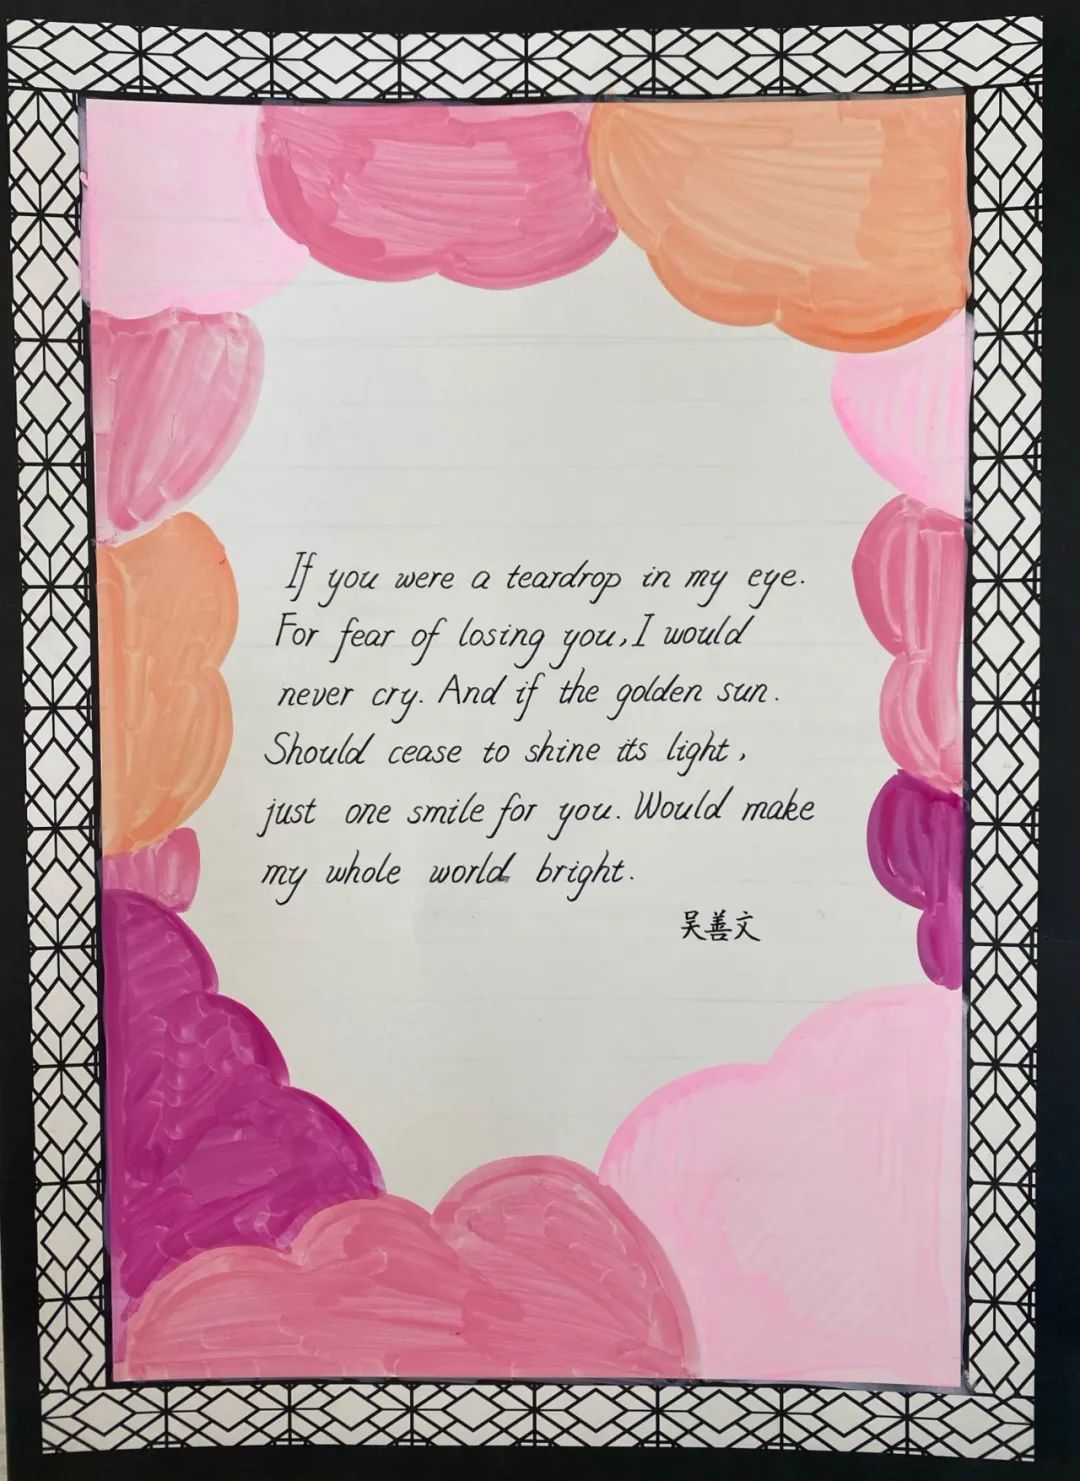 If you were a teardrop in my eye.
For fear of losing you, I would
never cry. And if the golden sun.
Should cease to shine its light,
just one smile for you. Would make
my whole world bright.
吴善文